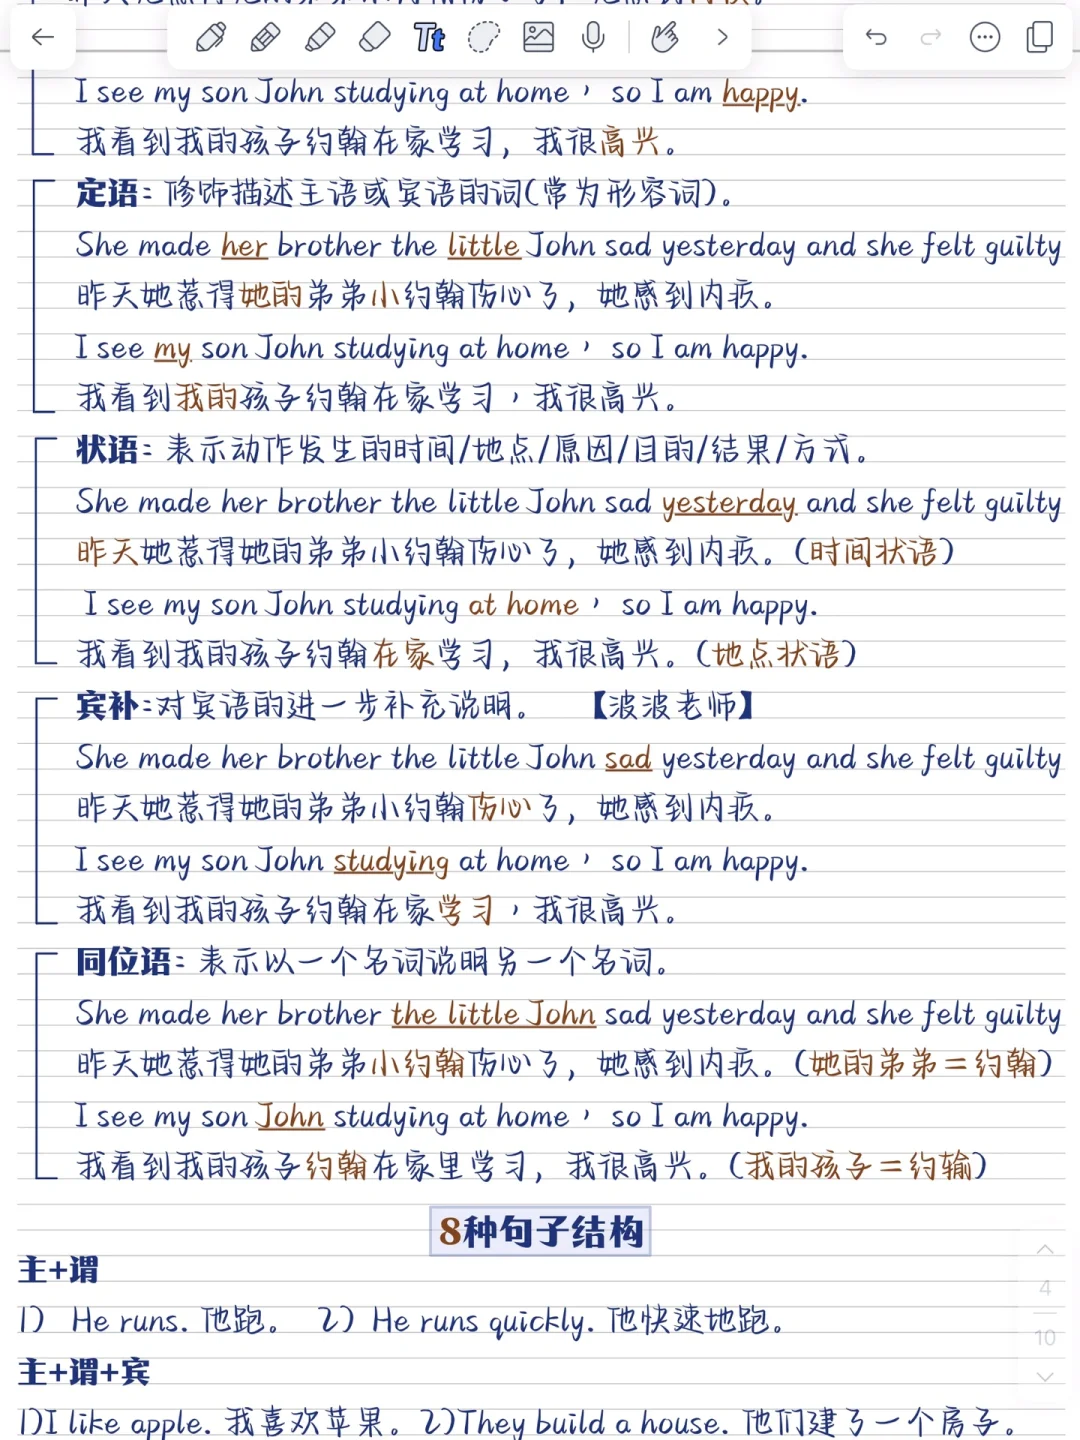 I see my son John studying at home， so I am happy.
我看到我的孩子约翰在家学习，我很高兴。
定语：修饰描述主语或宾语的词(常为形容词)。
She made her brother the little John sad yesterday and she felt guilty
昨天她惹得她的弟弟小约翰伤心了，她感到内疚。
I see my son John studying at home， so I am happy.
我看到我的孩子约翰在家学习，我很高兴。
状语：表示动作发生的时间/地点/原因/目的/结果/方式。
She made her brother the little John sad yesterday and she felt guilty
昨天她惹得她的弟弟小约翰伤心了，她感到内疚。（时间状语）
I see my son John studying at home， so I am happy.
我看到我的孩子约翰在家学习，我很高兴。（地点状语）
宾补：对宾语的进一步补充说明。 【波波老师】
She made her brother the little John sad yesterday and she felt guilty
昨天她惹得她的弟弟小约翰伤心了，她感到内疚。
I see my son John studying at home， so I am happy.
我看到我的孩子约翰在家学习，我很高兴。
同位语：表示以一个名词说明另一个名词。
She made her brother the little John sad yesterday and she felt guilty
昨天她惹得她的弟弟小约翰伤心了，她感到内疚。（她的弟弟＝约翰）
I see my son John studying at home， so I am happy.
我看到我的孩子约翰在家里学习，我很高兴。（我的孩子＝约输）
8种句子结构
主+谓
1） He runs. 他跑。 2）He runs quickly. 他快速地跑。
主+谓+宾
1)I like apple. 我喜欢苹果。2)They build a house. 他们建了一个房子。
Tt
4
10